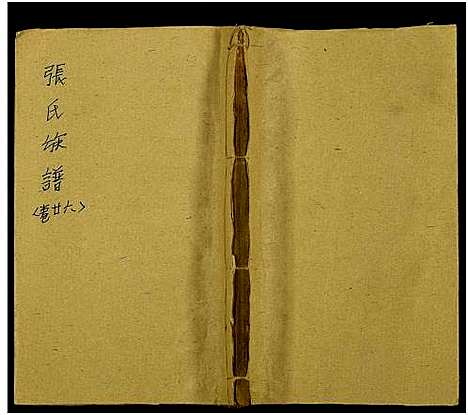 張氏族譜
〈卷廿六〉